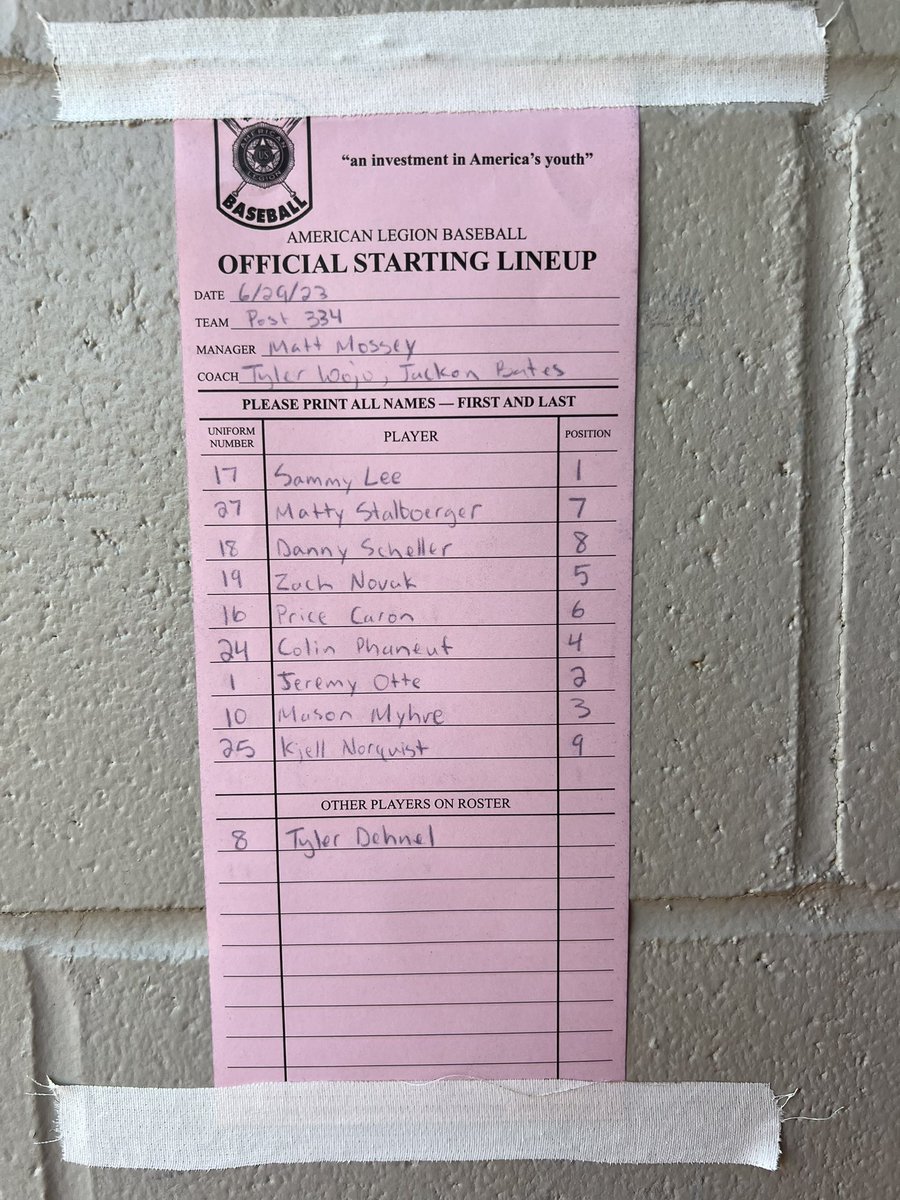 AMERICAN
US
LEGION
BASEBALL
“an investment in America’s youth”
AMERICAN LEGION BASEBALL
OFFICIAL STARTING LINEUP
DATE 6/29/23
TEAM Post 334
MANAGER Matt Mossey
COACH Tyler Wojo, Jackon Bates
PLEASE PRINT ALL NAMES — FIRST AND LAST
UNIFORM NUMBER PLAYER POSITION
17 Sammy Lee 1
27 Matty Stalboerger 7
18 Danny Scheller 8
19 Zach Novak 5
16 Price Caron 6
24 Colin Phaneuf 4
1 Jeremy Otte 2
10 Mason Myhre 3
25 Kjell Norquist 9
OTHER PLAYERS ON ROSTER
8 Tyler Dehnel